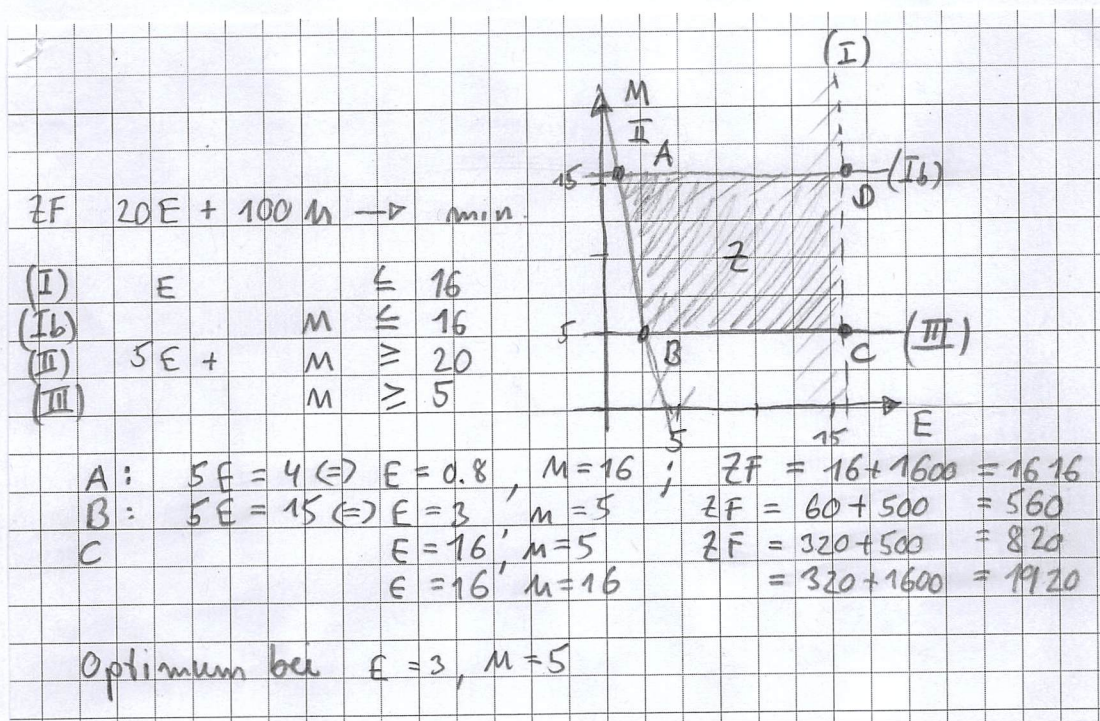 (I)
M
II
A
15
(Ib)
D
ZF 20E + 100M → min.
Z
(I) E ≤ 16
(Ib) M ≤ 16
5
(III)
(II) 5E + M ≥ 20
B
C
(III) M ≥ 5
5
15
E
A: 5E = 4 (=) E = 0.8, M = 16 ; ZF = 16 + 1600 = 1616
B: 5E = 15 (=) E = 3, M = 5 ZF = 60 + 500 = 560
C E = 16; M = 5 ZF = 320 + 500 = 820
E = 16, M = 16 = 320 + 1600 = 1920
Optimum bei E = 3, M = 5